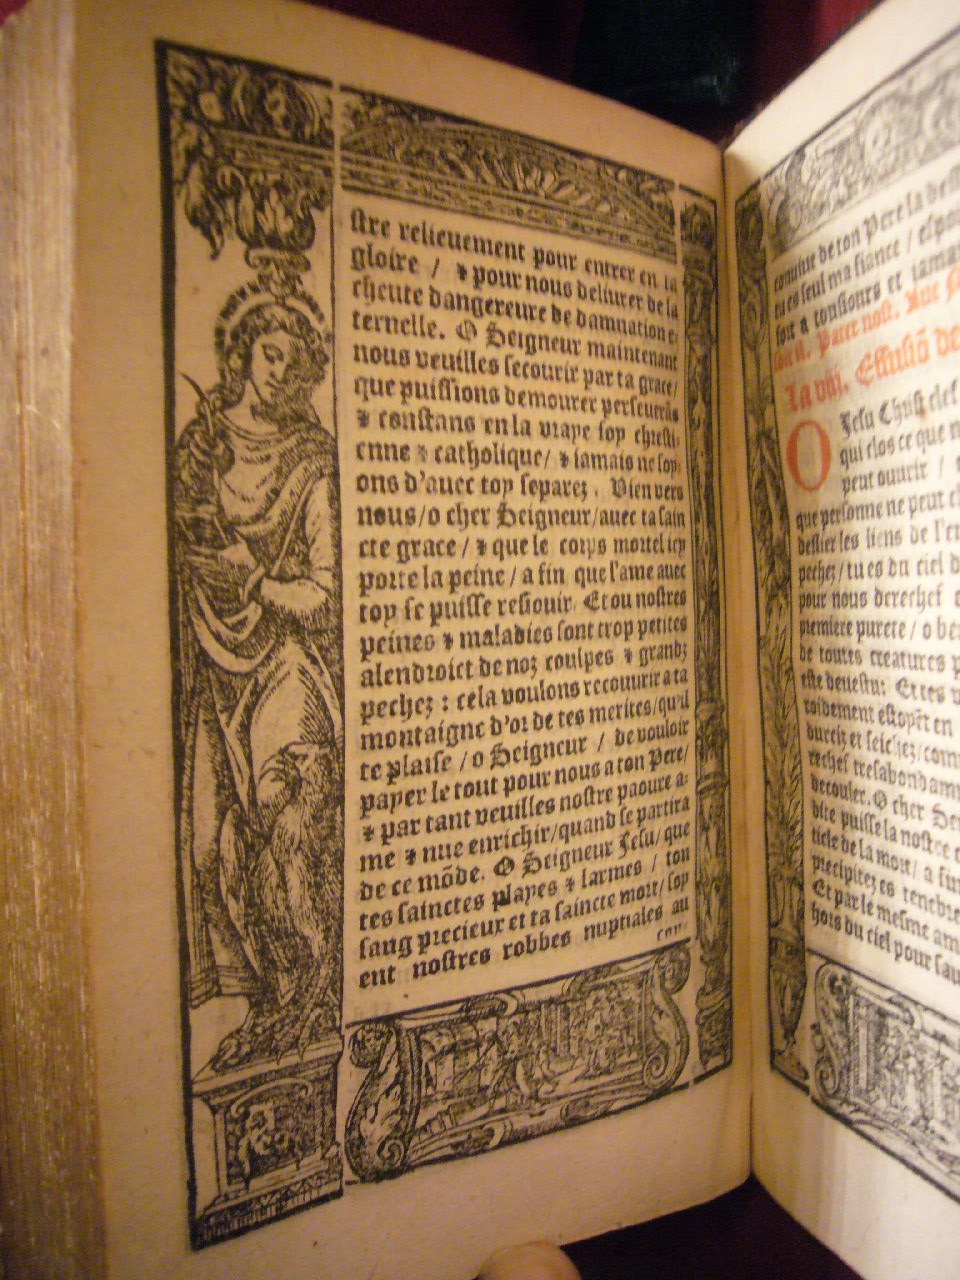 stre relieuement pour entrer en ta
gloire / ⁊ pour nous deliurer de la
cheute dangereure de damnation e-
ternelle. O Seigneur maintenant
nous veuilles secourir par ta grace/
que puissions demourer perseuerãs
⁊ constans en la vraye foy chresti-
enne ⁊ catholique/ ⁊ iamais ne soy-
ons d'auec toy separez. Vien vers
nous/o cher Seigneur/auec ta sain
cte grace/ ⁊ que le corps mortel icy
porte la peine/ a fin que l'ame auec
toy se puisse resiouir. Et ou nostres
peines ⁊ maladies sont trop petites
alendroict de noz coulpes ⁊ grandz
pechez: cela voulons recouurir a ta
montaigne d'or de tes merites/qu'il
te plaise/o Seigneur / de vouloir
payer le tout pour nous a ton Pere/
⁊ par tant veuilles nostre paoure a-
me ⁊ nue enrichir/quand se partira
de ce mõde. O Seigneur Jesu/que
tes sainctes playes ⁊ larmes / ton
sang precieux et ta saincte mort/soy
ent nostres robbes nuptiales au
conuiue de ton Pere la
tu es seul ma fiance /
soit a
Pater nost. Aue
La viij. Effusiõ de
O Jesu Christ clef
qui clos ce que
peut ouurir /
que personne ne peut
deslier les liens de
pechez/tu es du ciel
pour nous derechef
premiere purete/o
de toutes creatures
este deuestu: Et tes
roidement estoper̃ en
durciz et seichez/
rechef tresabondam
decouler. O cher
dite puisse la nostre
ticle de la mort/a
precipitez es tenebre
Et par le mesme
hors du ciel pour